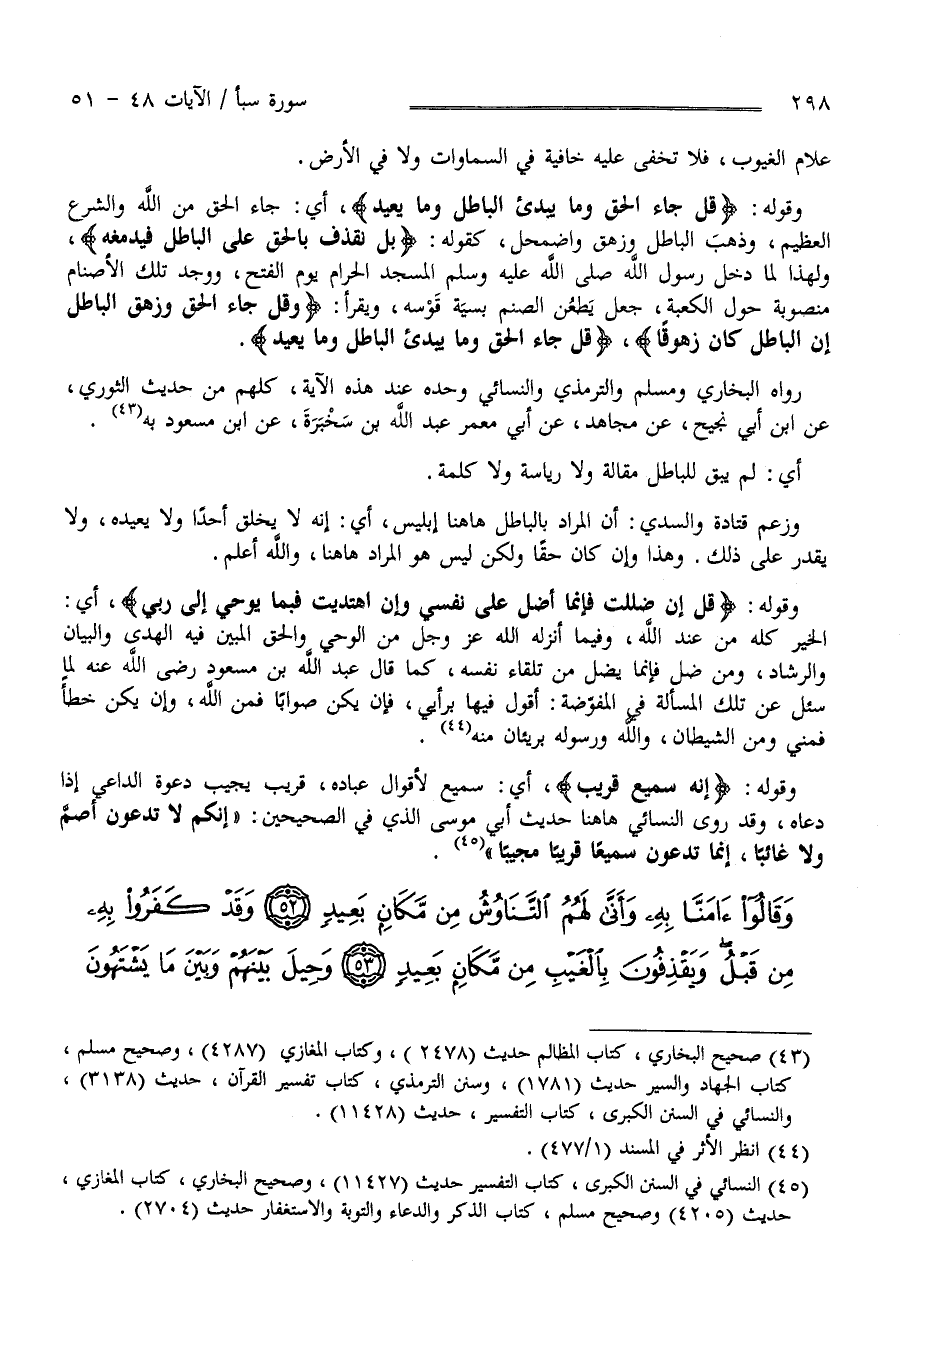 ٢٩٨ سورة سبأ / الآيات ٤٨ - ٥١
علام الغيوب ، فلا تخفى عليه خافية في السماوات ولا في الأرض .
وقوله : ﴿قل جاء الحق وما يبدئ الباطل وما يعيد﴾ ، أي : جاء الحق من اللَّه والشرع
العظيم ، وذهبَ الباطل وزهق واضمحل ، كقوله : ﴿بل نقذف بالحق على الباطل فيدمغه﴾ ،
ولهذا لما دخل رسول اللَّه صلى اللَّه عليه وسلم المسجد الحرام يوم الفتح ، ووجد تلك الأصنام
منصوبة حول الكعبة ، جعل يَطعُن الصنم بسيَة قَوْسه ، ويقرأ : ﴿وقل جاء الحق وزهق الباطل
إن الباطل كان زهوقًا﴾ ، ﴿قل جاء الحق وما يبدئ الباطل وما يعيد﴾ .
رواه البخاري ومسلم والترمذي والنسائي وحده عند هذه الآية ، كلهم من حديث الثوري ،
عن ابن أبي نجيح ، عن مجاهد ، عن أبي معمر عبد اللَّه بن سَخْبَرَةَ ، عن ابن مسعود به(٤٣) .
أي : لم يبق للباطل مقالة ولا رياسة ولا كلمة .
وزعم قتادة والسدي : أن المراد بالباطل هاهنا إبليس ، أي : إنه لا يخلق أحدًا ولا يعيده ، ولا
يقدر على ذلك . وهذا وإن كان حقًا ولكن ليس هو المراد هاهنا ، واللَّه أعلم .
وقوله : ﴿قل إن ضللت فإنما أضل على نفسي وإن اهتديت فبما يوحي إلى ربي﴾ ، أي :
الخير كله من عند اللَّه ، وفيما أنزله الله عز وجل من الوحي والحق المبين فيه الهدى والبيان
والرشاد ، ومن ضل فإنما يضل من تلقاء نفسه ، كما قال عبد اللَّه بن مسعود رضى اللَّه عنه لما
سئل عن تلك المسألة في المفوّضة : أقول فيها برأيي ، فإن يكن صوابًا فمن اللَّه ، وإن يكن خطأً
فمني ومن الشيطان ، واللَّه ورسوله بريئان منه(٤٤) .
وقوله : ﴿إنه سميع قريب﴾ ، أي : سميع لأقوال عباده ، قريب يجيب دعوة الداعي إذا
دعاه ، وقد روى النسائي هاهنا حديث أبي موسى الذي في الصحيحين : « إنكم لا تدعون أصمَّ
ولا غائبًا ، إنما تدعون سميعًا قريبًا مجيبًا »(٤٥) .
وَقَالُوٓا۟ ءَامَنَّا بِهِۦ وَأَنَّىٰ لَهُمُ ٱلتَّنَاوُشُ مِن مَّكَانٍۭ بَعِيدٍ ٥٢ وَقَدْ كَفَرُوا۟ بِهِۦ
مِن قَبْلُ ۖ وَيَقْذِفُونَ بِٱلْغَيْبِ مِن مَّكَانٍۭ بَعِيدٍ ٥٣ وَحِيلَ بَيْنَهُمْ وَبَيْنَ مَا يَشْتَهُونَ
(٤٣) صحيح البخاري ، كتاب المظالم حديث (٢٤٧٨ ) ، وكتاب المغازي (٤٢٨٧) ، وصحيح مسلم ،
كتاب الجهاد والسير حديث (١٧٨١) ، وسنن الترمذي ، كتاب تفسير القرآن ، حديث (٣١٣٨) ،
والنسائي في السنن الكبرى ، كتاب التفسير ، حديث (١١٤٢٨) .
(٤٤) انظر الأثر في المسند (٤٧٧/١) .
(٤٥) النسائي في السنن الكبرى ، كتاب التفسير حديث (١١٤٢٧) ، وصحيح البخاري ، كتاب المغازي ،
حديث (٤٢٠٥) وصحيح مسلم ، كتاب الذكر والدعاء والتوبة والاستغفار حديث (٢٧٠٤) .